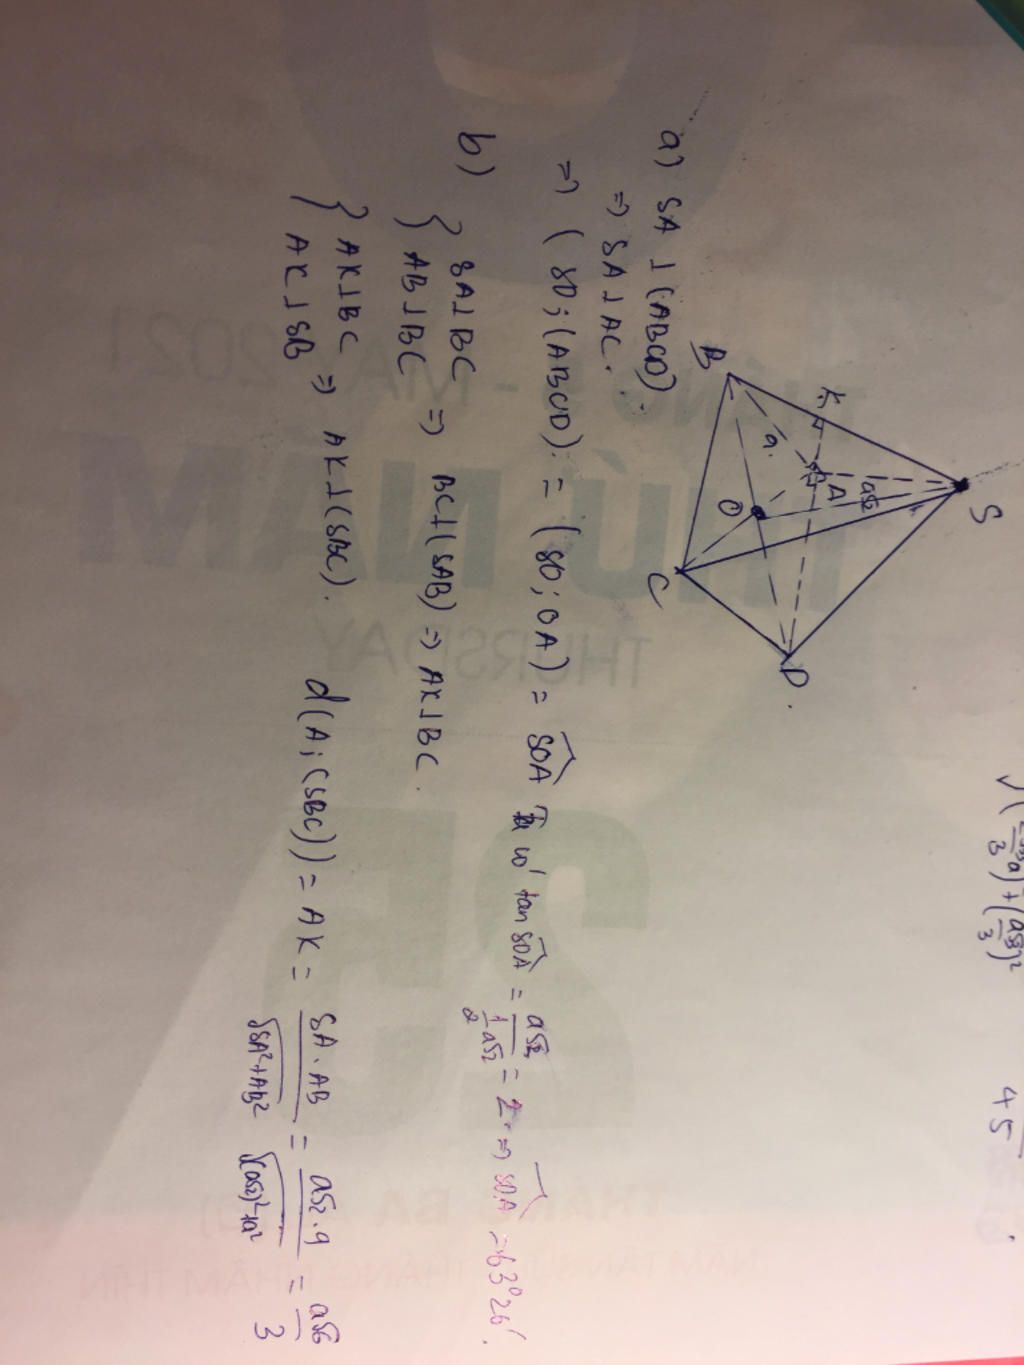 √(2√3a/3)²+(a√3/3)²
45
S
K
A
a√2
a
B
O
C
D
a) SA ⊥ (ABCD)
⇒ SA ⊥ AC.
⇒ (SO; (ABCD)) = (SO; OA) = SOA Ta có tan SOA = a√2 / ½a√2 = 2 ⇒ SOA = 63°26'.
b) { SA⊥BC
AB⊥BC ⇒ BC⊥(SAB) ⇒ AK⊥BC.
{ AK⊥BC
AK⊥SB ⇒ AK⊥(SBC). d(A;(SBC)) = AK = SA.AB / √SA²+AB² = a√2.a / √(a√2)²+a² = a√6 / 3
THỨ NĂM
THURSDAY
25